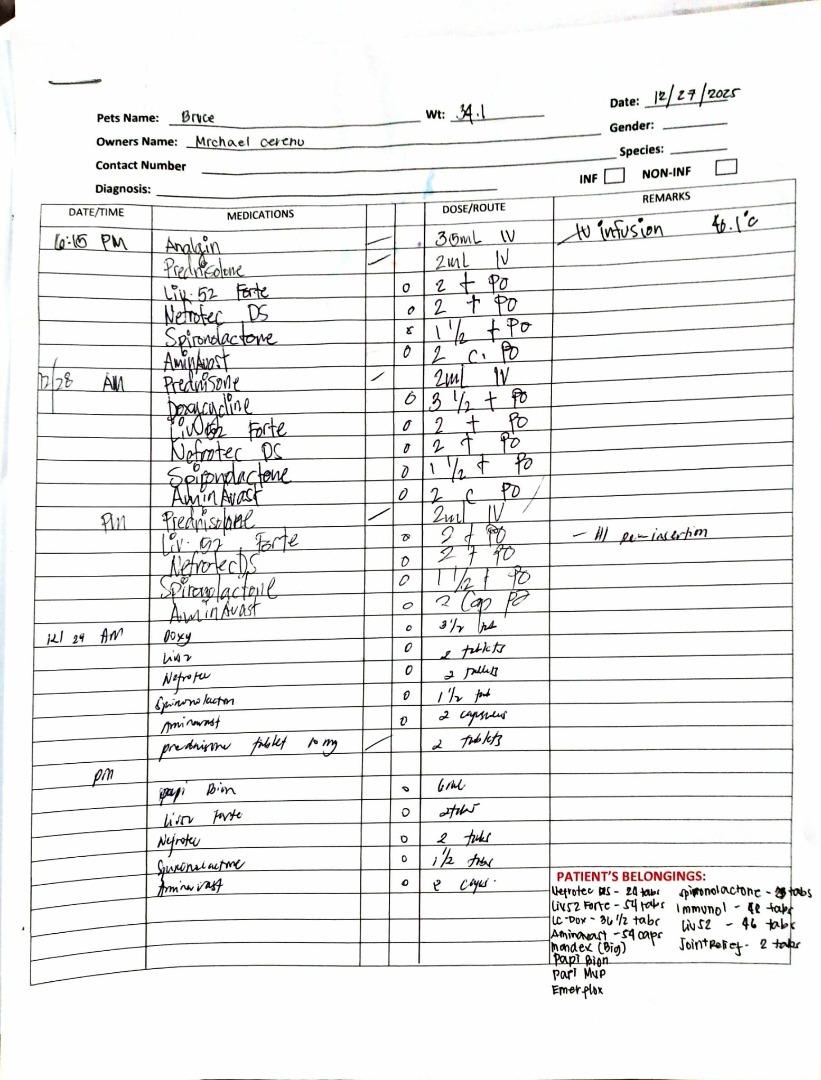 Date: 12/27/2025
Pets Name: Bruce Wt: 34.1
Gender:
Owners Name: Mrchael
Species:
Contact Number
INF NON-INF
Diagnosis:
DATE/TIME MEDICATIONS DOSE/ROUTE REMARKS
6:15 PM Analgin IV infusion
Prednisolone 2mL IV
Liv. 52 Forte 0 2 t PO
Nefrotec DS 0 2 t PO
Spironolactone 1 1/2 t PO
AminAvast 0 2 c. PO
12/28 AM Prednisone 2ml IV
Doxycycline 0 3 1/2 t PO
Liv 52 Forte 0 2 t PO
Nefrotec DS 0 2 t PO
Spironolactone 0 1 1/2 t PO
AminAvast 0 2 c PO
PM Prednisolone 2ml IV
Liv. 52 Forte 0 2 t PO - re-insertion
Nefrotec DS 0 2 t PO
Spironolactone 0 1 1/2 t PO
AminAvast 0 2 Cap PO
12/ 29 AM Doxy 0 3 1/2
0 2 tablets
Nefrotec 0 2
0 1 1/2 tab
Aminavast 0 2 capsules
prednisone tablet 10 mg 2 tablets
pm
papi Bion 0 6ml
Liv52 Forte 0 2 tabs
Nefrotec 0 2 tabs
0 1 1/2 tabs
Aminavast 0 2 caps.
PATIENT'S BELONGINGS:
Nefrotec DS - tabs spironolactone - tabs
Liv52 Forte - 54 tabs Immunol - 48 tabs
LC-Dox - 36 1/2 tabs Liv52 - 46 tabs
Aminavast - 54 caps Joint Relief - 2 tabs
(Big)
Papi Bion
Papi MVP
Emerplox